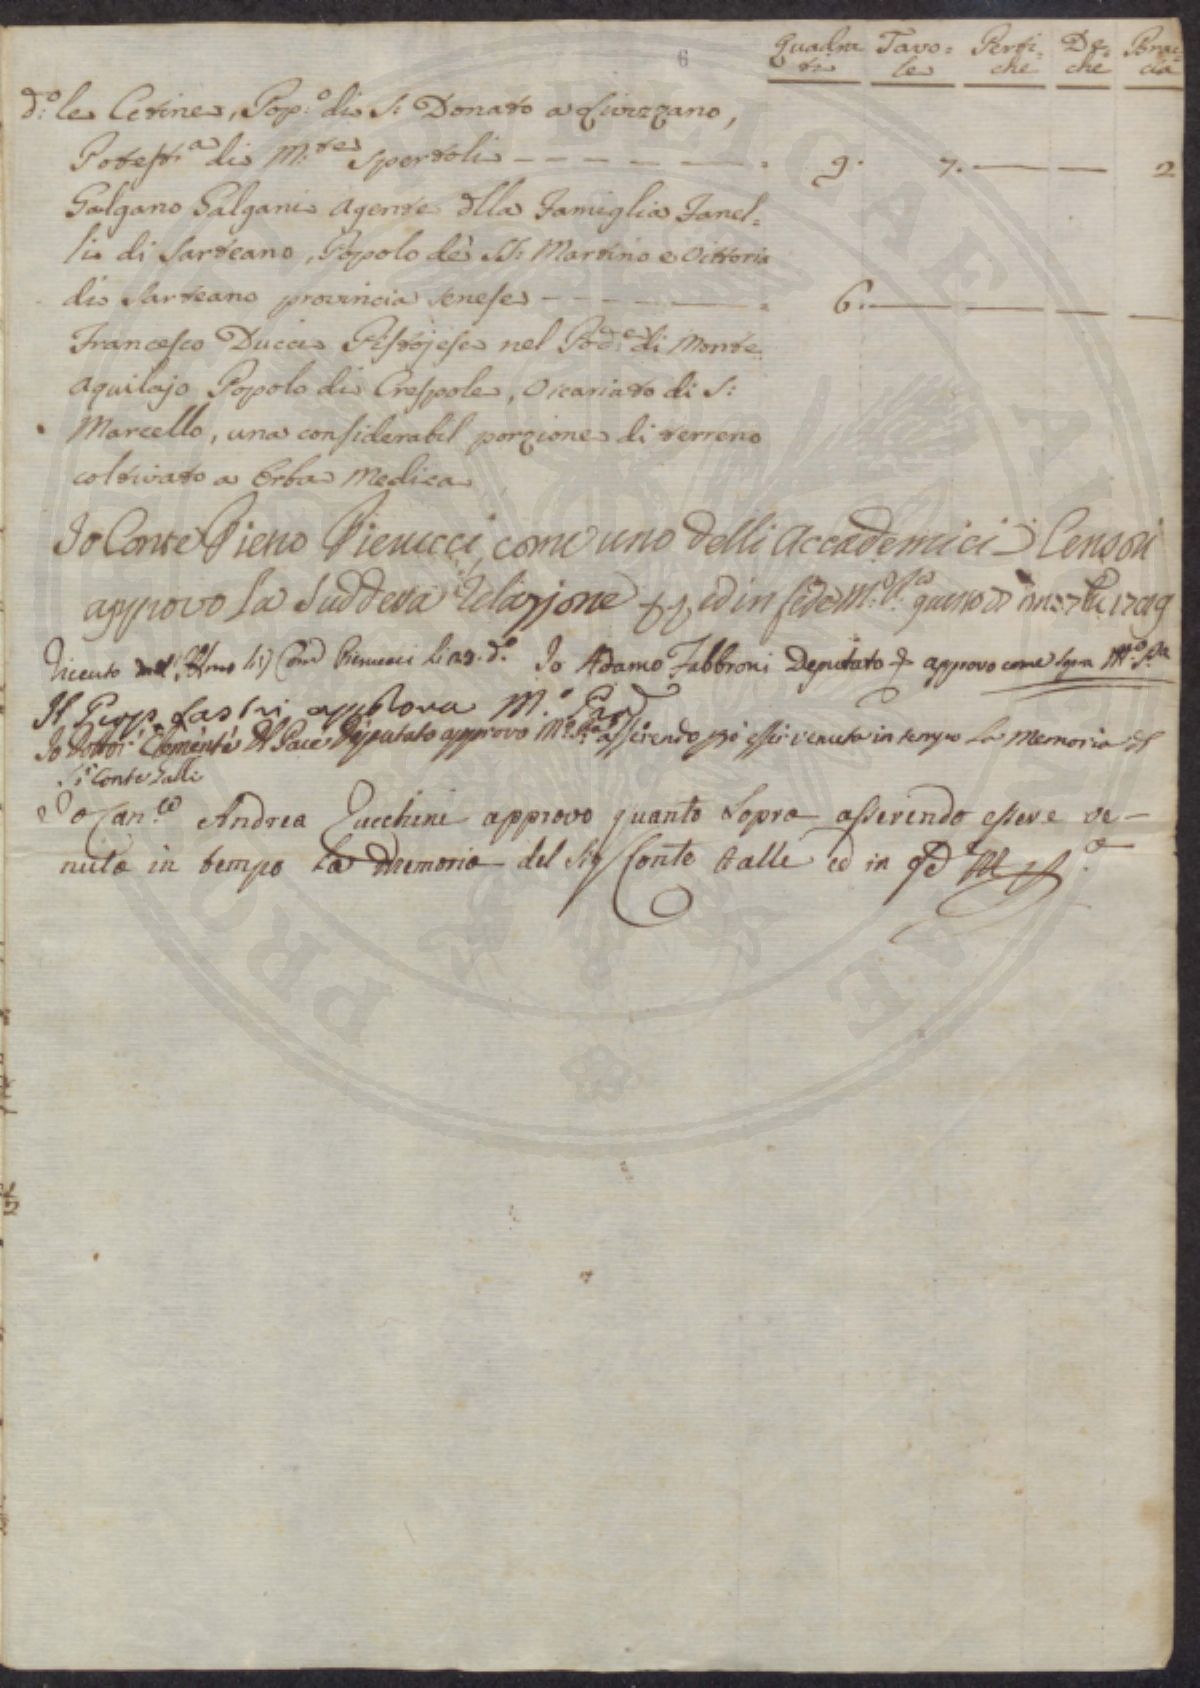 6
Quadra Tavo= Perti= De= Brac
ti le che che cia
d.º le Cetine, Pop.º di S: Donato a Livizzano,
Potest.a di M.te Spertoli 9. 7. 2
Galgano Galgani Agente dlla Famiglia Fanel=
li di Sarteano, Popolo dè SS: Martino e Vittoria
di Sarteano provincia senese 6.
Francesco Ducci Pistojese nel Pod.e di Monte
Aquilajo Popolo di Crespole, Vicariato di S:
Marcello, una considerabil porzione di terreno
coltivato a Erba Medica
Io Conte Piero Pierucci, come uno delli Accademici Censori
approvo la suddetta Relazione ed in fede M.º P.a questo dì
Io Adamo Fabbroni Deputato approvo come sopra M.º P.a
Lastri approva M.º P.a
Clemente Del Pace Deputato approvo M.º P.a asserendo esser venuta in tempo la Memoria del
Conte Galli
Io Can.co Andrea Zucchini approvo quanto sopra asserendo essere ve-
nuta in tempo la Memoria del Sig Conte Galli ed in
PUBLICAE